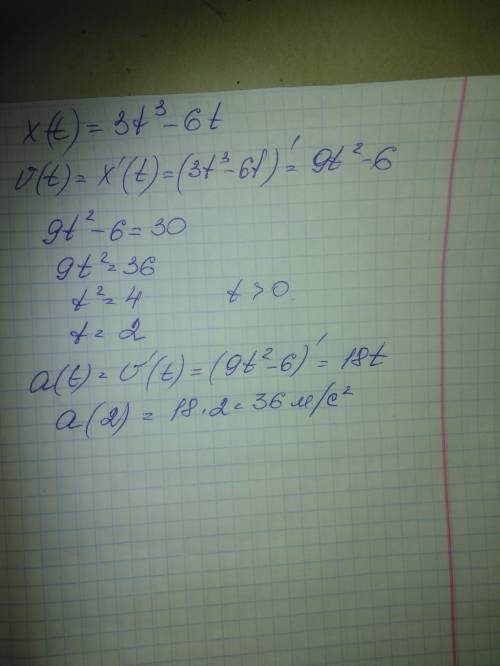 x(t) = 3t³ - 6t
v(t) = x'(t) = (3t³ - 6t)' = 9t² - 6
9t² - 6 = 30
9t² = 36
t² = 4 t > 0.
t = 2
a(t) = v'(t) = (9t² - 6)' = 18t
a(2) = 18·2 = 36 м/с²